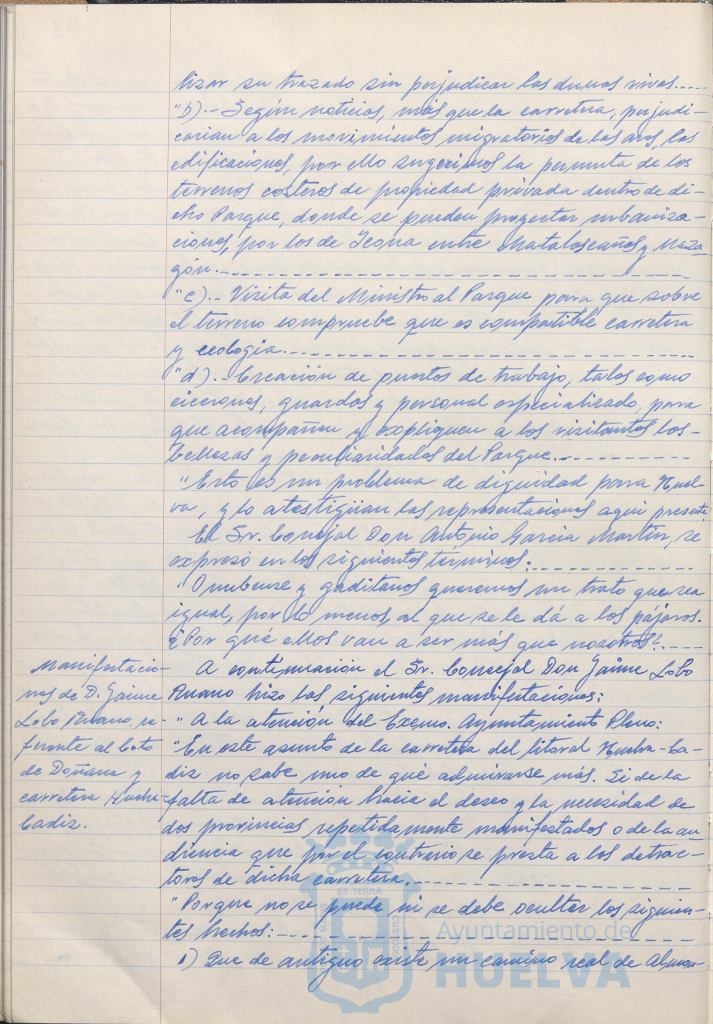 lizar su trazado sin perjudicar las dunas vivas.....
"b).- Según noticias, más que la carretera, perjudi-
carian a los movimientos migratorios de las aves, las
edificaciones, por ello sugerimos la permuta de los
terrenos costeros de propiedad privada dentro de di-
cho Parque, donde se pueden proyectar urbaniza-
ciones, por los de Icona entre Matalascañas y Maza-
gón.-
"c).- Visita del Ministro al Parque para que sobre
el terreno compruebe que es compatible carretera
y ecologia.
"d).- Creación de puestos de trabajo, tales como
cicerones, guardas y personal especializado, para
que acompañen y expliquen a los visitantes las
bellezas y peculiaridades del Parque.
"Esto es un problema de dignidad para Huel-
va, y lo atestigüan las representaciones aqui presente
El Sr. Concejal Don Antonio Garcia Martin, se
expresó en los siguientes términos:
"Onubense y gaditanos queremos un trato que sea
igual, por lo menos, al que se le dá a los pájaros.
¿Por qué ellos van a ser más que nosotros?
Manifestacio-
nes de D. Jaime
Lobo Ruano, re-
ferente al Coto
de Doñana y
carretera Huelva-
Cadiz.
A continuación el Sr. Concejal Don Jaime Lobo
Ruano hizo las siguientes manifestaciones:
"A la atención del Excmo. Ayuntamiento Pleno:
"En este asunto de la carretera del litoral Huelva-Ca-
diz no sabe uno de qué admirarse más. Si de la
falta de atención hacia el deseo y la necesidad de
dos provincias repetidamente manifestados o de la au-
diencia que por el contrario se presta a los detrac-
tores de dicha carretera.
"Porque no se puede ni se debe ocultar los siguien-
tes hechos:
1) Que de antiguo existe un camino real de Almon-
Ayuntamiento de
HUELVA